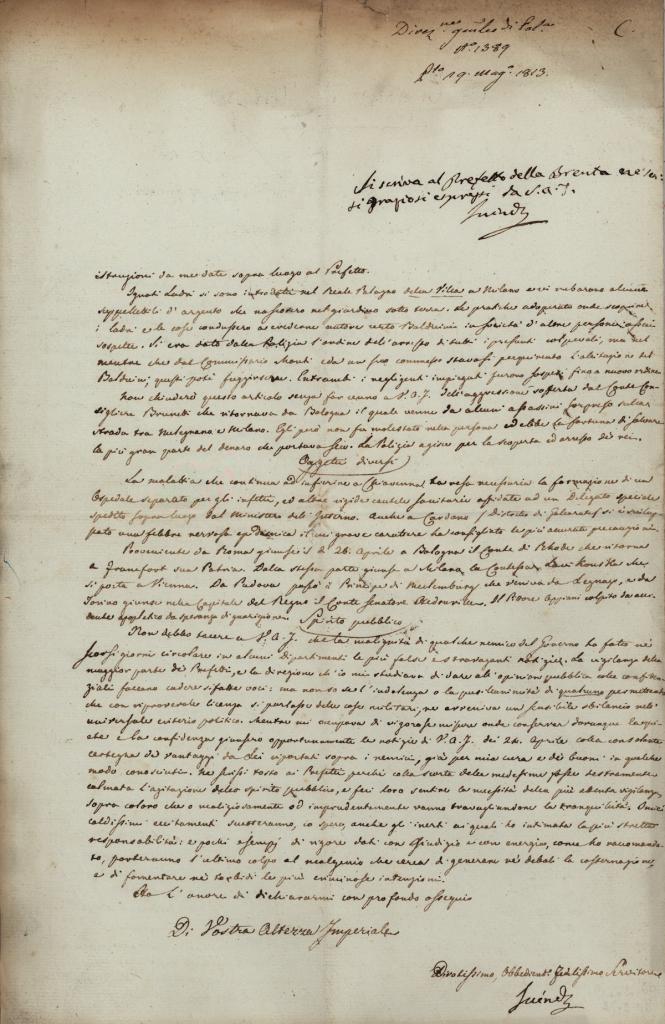 Direz.ne gen.le di Pol.a
N.o 1389
P.to 19. Mag.o 1813.
C.
Si scriva al Prefetto della Brenta ne' sen-
si graziosi espressi da S.A.I.
istruzioni da me date sopra luogo al Prefetto.
Ignoti Ladri si sono introdotti nel Reale Palazzo della Villa a Milano e vi rubarono alcune
suppellettili d'argento che nascosero nel giardino sotto terra. Le pratiche adoperate onde scoprire
i ladri e le cose condussero a credere autore certo Balduini in società d'altre persone
sospette. Si era data dalla Polizia l'ordine dell'arresto di tutti i presunti colpevoli, ma nel
mentre che dal Commissario Monti e da un suo commesso stavasi perquirendo l'abitazione del
Balduini, questi poté fuggirsene. Entrambi i negligenti impiegati furono sospesi fino a nuovo ordine.
Non chiuderò questo articolo senza far cenno a V.A.I. dell'aggressione sofferta dal Conte Con-
sigliere Brunetti che ritornava da Bologna il quale venne da alcuni assassini sorpreso sulla
strada tra Melegnano e Milano. Egli però non fu molestato nella persona ed ebbe la fortuna di salvare
la più gran parte del denaro che portava seco. La Polizia agisce per la scoperta ed arresto dei rei.
Oggetti diversi
La malattia che continua ad infierire a Chiavenna ha resa necessaria la formazione di un
Ospedale separato per gli infetti, ed altre rigide cautele sanitarie affidate ad un Delegato speciale
spedito sopra luogo dal Ministero dell'Interno. Anche a Cardano (Distretto di Gallarate) si è svilup-
pata una febbre nervosa epidemica il cui grave carattere ha consigliato le più accurate precauzioni.
Proveniente da Roma giunse il dì 26. Aprile a Bologna il Conte di Rhode che ritorna
a Francfort sua Patria. Dalla stessa parte giunse a Milano la Contessa che
si porta a Vienna. Da Padova passò il Principe di Mecklemburg che veniva da Legnago, e da
Torino giunse nella Capitale del Regno il Conte Senatore. Il Pittore Appiani colpito da acci-
dente apopletico dà speranza di guarigione.
Spirito pubblico
Non debbo tacere a V.A.I. che la malignità di qualche nemico del Governo ha fatto ne'
scorsi giorni circolare in alcuni dipartimenti le più false e stravaganti notizie. La vigilanza della
maggior parte dei Prefetti, e la direzione che io mi studiava di dare all'opinion pubblica colle confiden-
ziali faceano cadere siffatte voci: ma non so se l'indolenza o la pusillanimità di qualcuno permettendo
che con riprovevole licenza si parlasse delle cose militari, ne avveniva un sensibile sbilancio nell'
universale criterio politico. Mentre mi occupava di vigorose misure onde conservar dovunque la quie-
te e la confidenza giunsero opportunamente le notizie di V.A.I. dei 24. Aprile colla consolante
certezza de' vantaggi da Lei riportati sopra i nemici, già per mia cura e dei buoni in qualche
modo conosciuti. Ne scrissi tosto ai Prefetti perché colla scorta delle medesime fosse destramente
calmata l'agitazione dello spirito pubblico, e feci loro sentire la necessità della più attenta vigilanza
sopra coloro che o maliziosamente od imprudentemente vanno travagliandone la tranquillità. I miei
caldissimi eccitamenti scuoteranno, io spero, anche gli inerti ai quali ho intimata la più stretta
responsabilità: e pochi esempj di rigore dati con giudizio e con energia, come ho raccomanda-
to, porteranno l'ultimo colpo al malgenio che cerca di generare ne' deboli la costernazione,
e di fomentare ne' torbidi le più criminose intenzioni.
Ho l'onore di dichiararmi con profondo ossequio
Di Vostra Altezza Imperiale
Divotissimo, Obbedient.o Fedelissimo Servitore